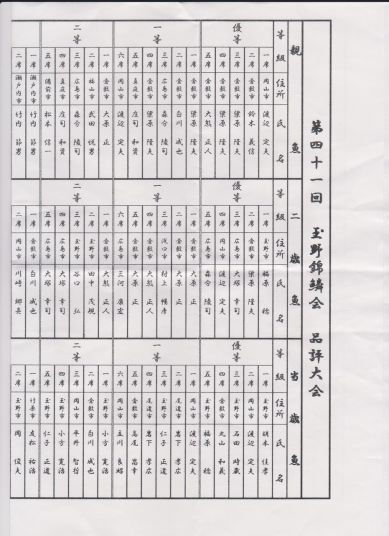 第四十一回 玉野錦鱗会 品評大会
親魚
等級 住所 氏名
優等
一席 岡山市 渡辺 定夫
二席 倉敷市 鈴木 義信
三席 倉敷市 梁原 隆夫
四席 倉敷市 梁原 隆夫
五席 倉敷市 大熊 正人
一等
一席 倉敷市 梁原 隆夫
二席 倉敷市 白川 成也
三席 広島市 森分 陵司
四席 倉敷市 梁原 隆夫
五席 真庭市 庄司 和資
六席 岡山市 渡辺 定夫
二等
一席 倉敷市 大原 正
二席 福山市 武田 悦男
三席 広島市 森分 陵司
四席 真庭市 庄司 和資
五席 備前市 松本 信一
一席 瀬戸内市 竹内 節男
二席 瀬戸内市 竹内 節男
二歳魚
等級 住所 氏名
優等
一席 玉野市 福原 稔
二席 倉敷市 梁原 隆夫
三席 広島市 大塚 幸司
四席 岡山市 渡辺 定夫
五席 広島市 森分 陵司
一等
一席 倉敷市 大原 正
二席 倉敷市 大原 正
三席 浅口市 村上 暢彦
四席 倉敷市 大熊 正人
五席 倉敷市 大原 正
六席 広島市 三河 康宏
二等
一席 倉敷市 大熊 正人
二席 玉野市 田中 茂槻
三席 玉野市 谷口 弘
四席 広島市 大塚 幸司
五席 広島市 大塚 幸司
一席 倉敷市 白川 成也
二席 岡山市 川崎 郷
当歳魚
等級 住所 氏名
優等
一席 玉野市 明本 佳孝
二席 岡山市 渡辺 定夫
三席 玉野市 石田 時蔵
四席 倉敷市 大山 和義
五席 玉野市 福原 稔
一等
一席 岡山市 渡辺 定夫
二席 尾道市 岩下 孝広
三席 玉野市 仁子 正道
四席 尾道市 岩下 孝広
五席 玉野市 高尾 昌幸
六席 岡山市 立川 良昭
二等
一席 玉野市 小方 寛治
二席 倉敷市 白川 成也
三席 岡山市 平井 智哲
四席 玉野市 小方 寛治
五席 玉野市 仁子 正道
一席 竹原市 友松 裕浩
二席 玉野市 岡 俊夫